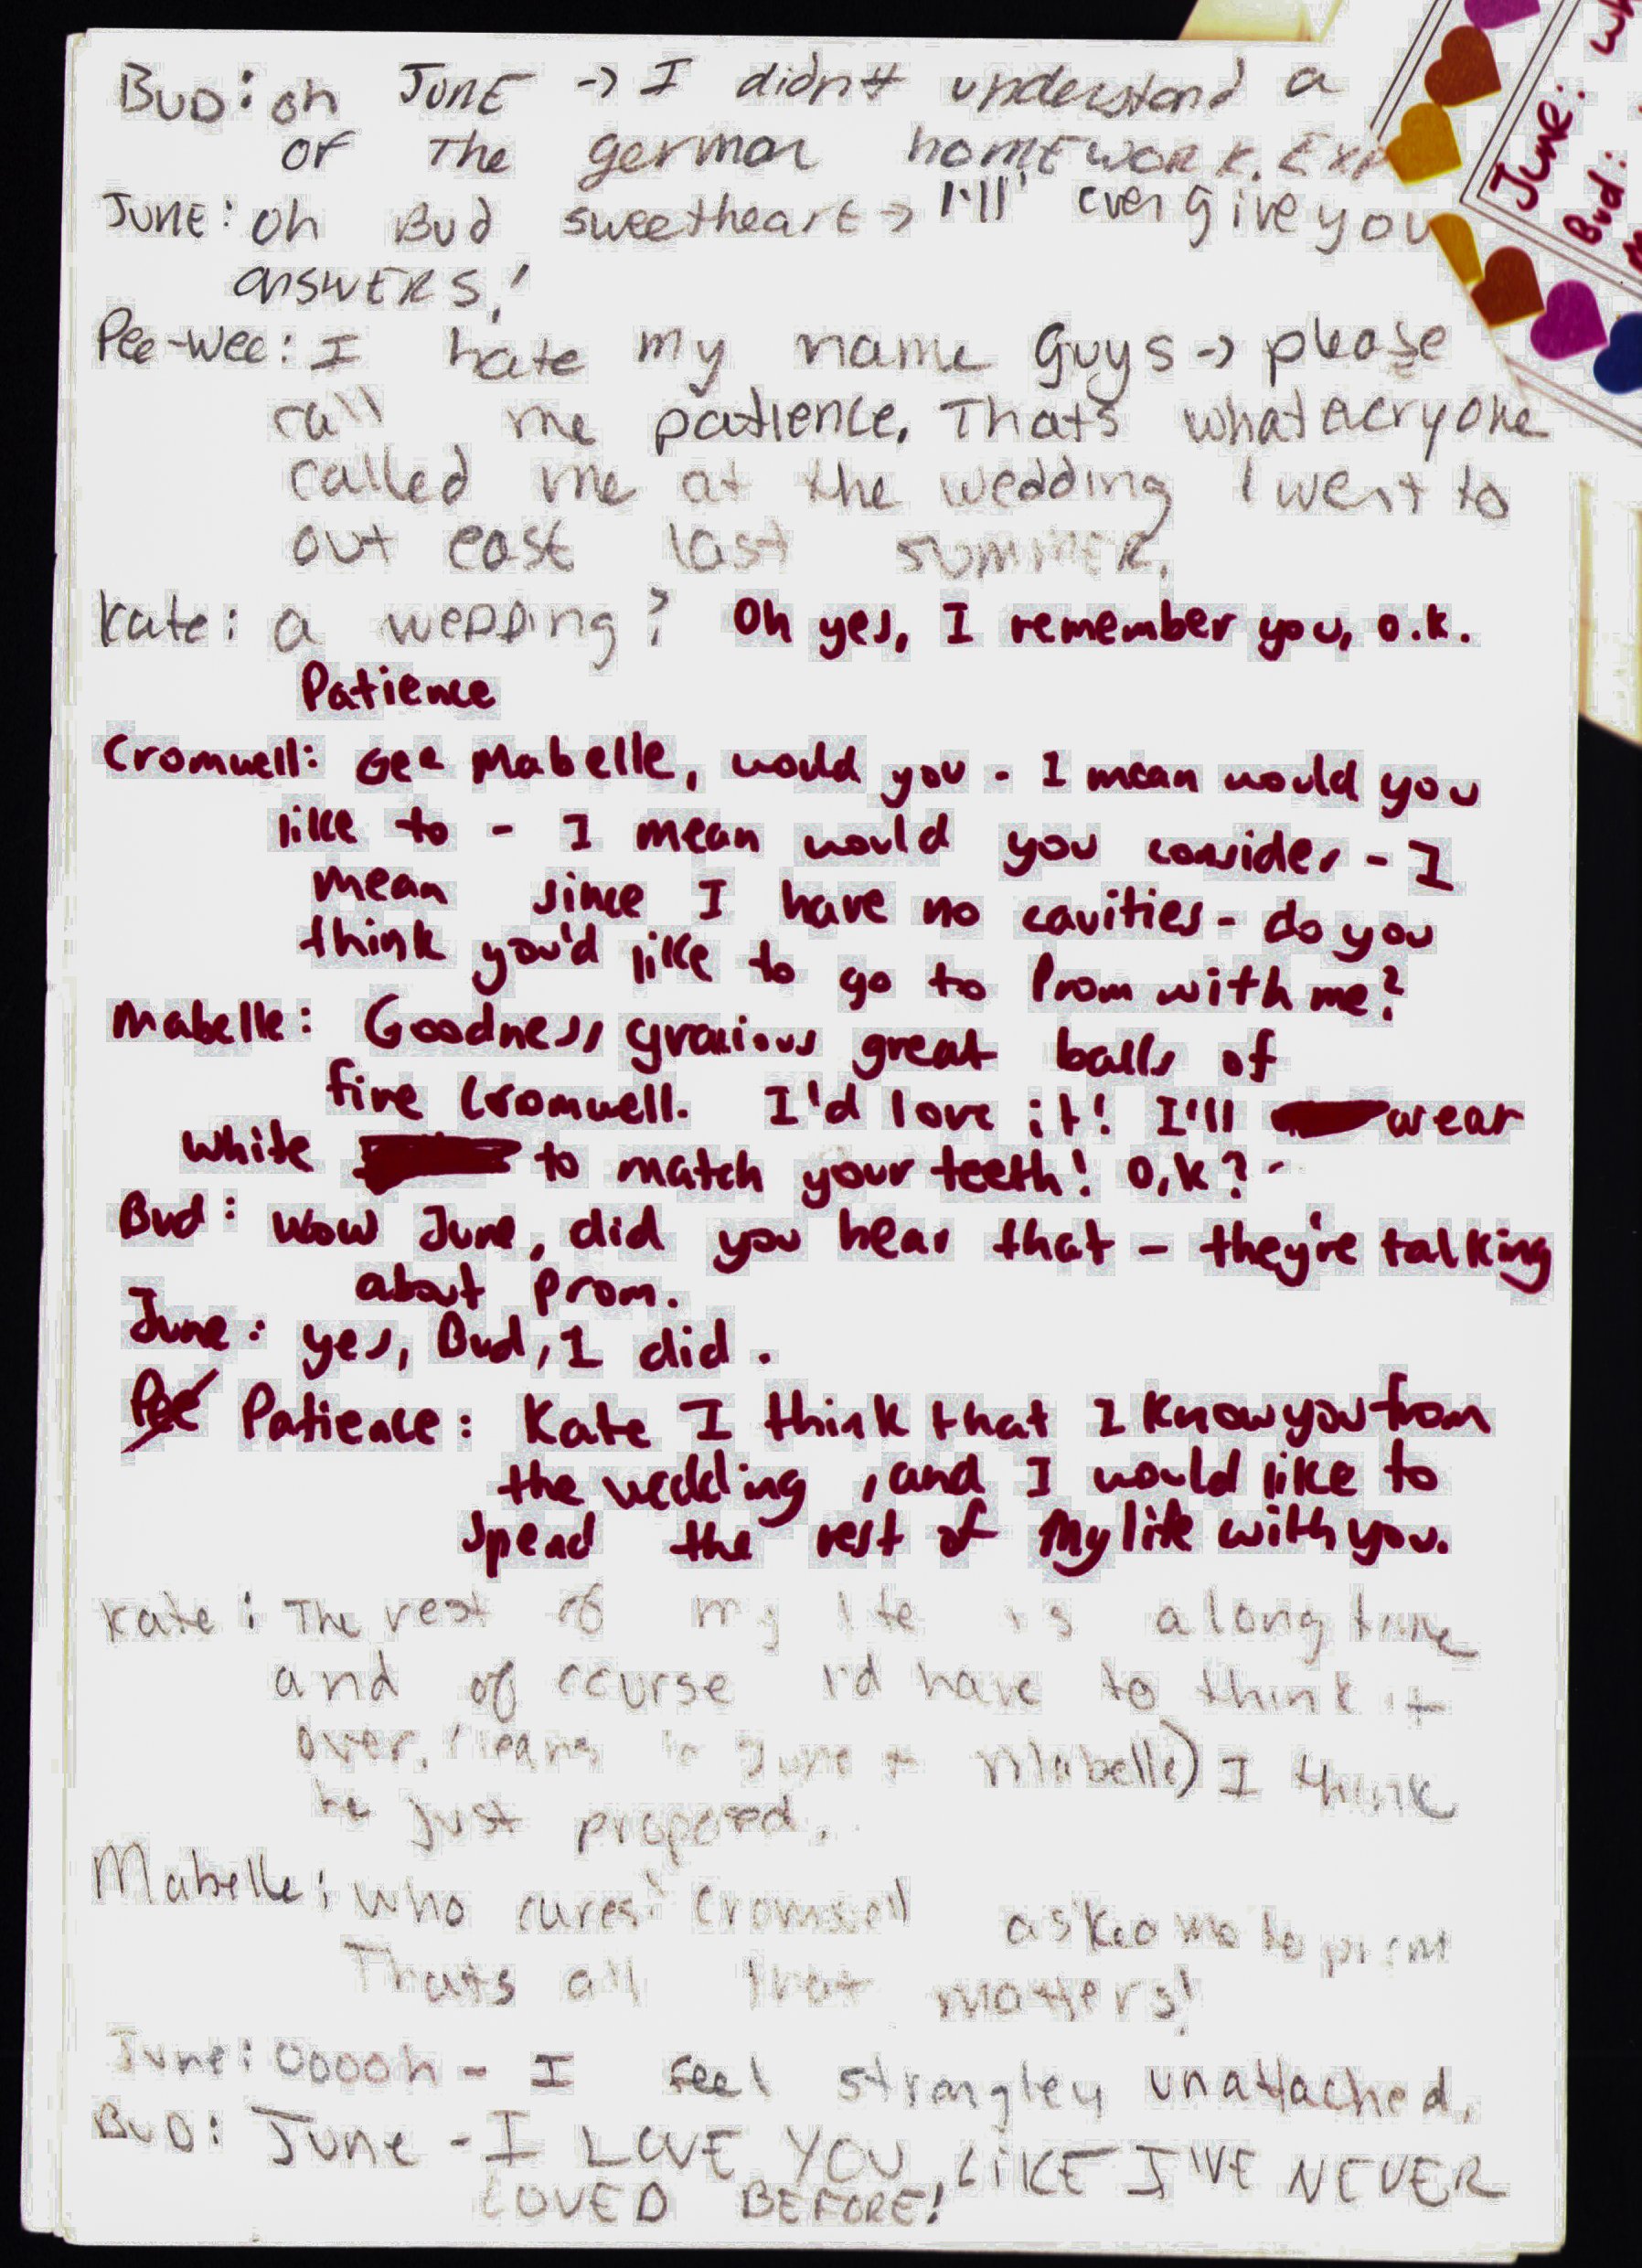 BUD: oh JUNE -> I didn't understand a
of The german homEwoRK. Exp
JUNE: oh Bud sweetheart -> I'll even give you
answERS!
Pee-wee: I hate my name Guys -> please
call me patience. That's what everyone
called me at the wedding I went to
out east last summER.
Kate: a wedding? Oh yes, I remember you, o.k.
Patience
Cromwell: Gee Mabelle, would you - I mean would you
like to - I mean would you consider - I
mean since I have no cavities - do you
think you'd like to go to Prom with me?
Mabelle: Goodness gracious great balls of
fire Cromwell. I'd love it! I'll wear
white to match your teeth! O.K?
Bud: Wow June, did you hear that - they're talking
about prom.
June: yes, Bud, I did.
Pee Patience: Kate I think that I know you from
the wedding, and I would like to
spend the rest of my life with you.
Kate: The rest of my life is a long time
and of course I'd have to think it
over. (leans to June + Mabelle) I think
he just proposed.
Mabelle: who cares! Cromwell asked me to prom
Thats all that matters!
June: Ooooh - I feel strangley unattached.
BUD: June - I LOVE YOU LIKE I'VE NEVER
LOVED BEFORE!
June:
Bud: